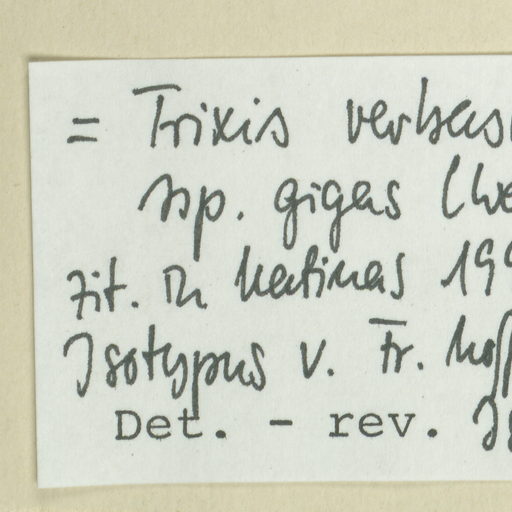 = Trixis verbas
ssp. gigas (We
zit. in Katinas 199
Isotypus v. Tr. hoff
Det. - rev.